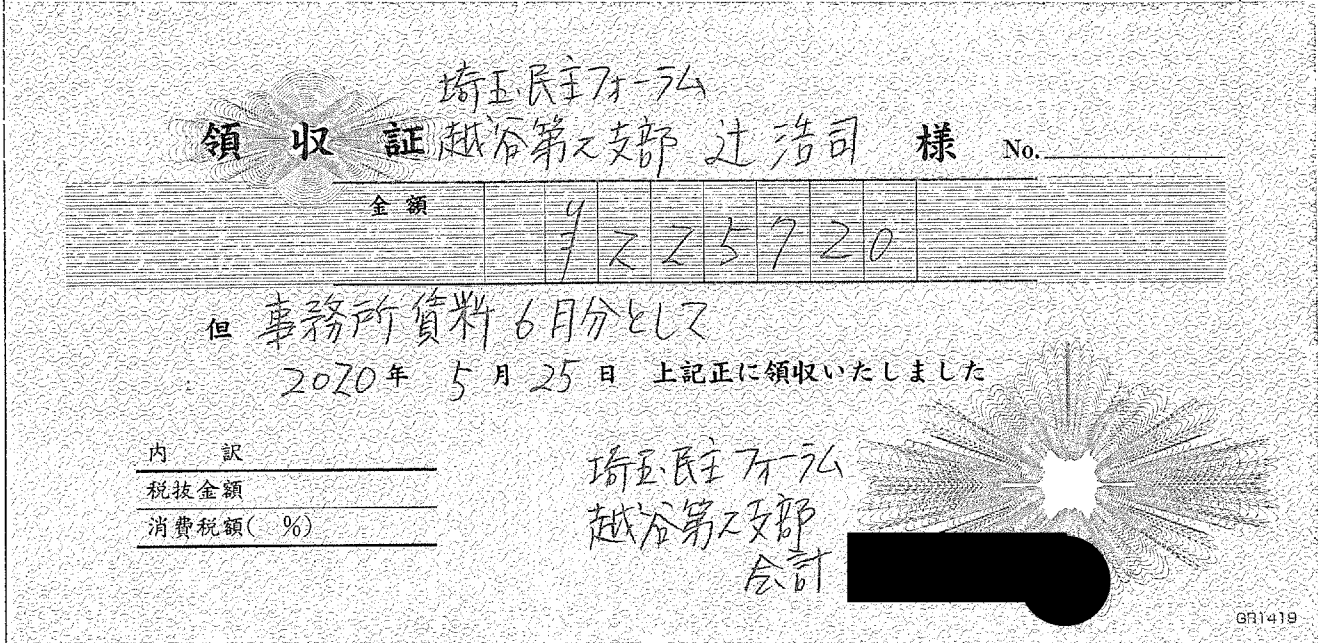 埼玉民主フォーラム
領収証 越谷第2支部 辻浩司 様 No.
金額 ¥225720
但 事務所賃料6月分として
2020年 5月 25日 上記正に領収いたしました
内訳
税抜金額
消費税額( %)
埼玉民主フォーラム
越谷第2支部
会計
GR1419